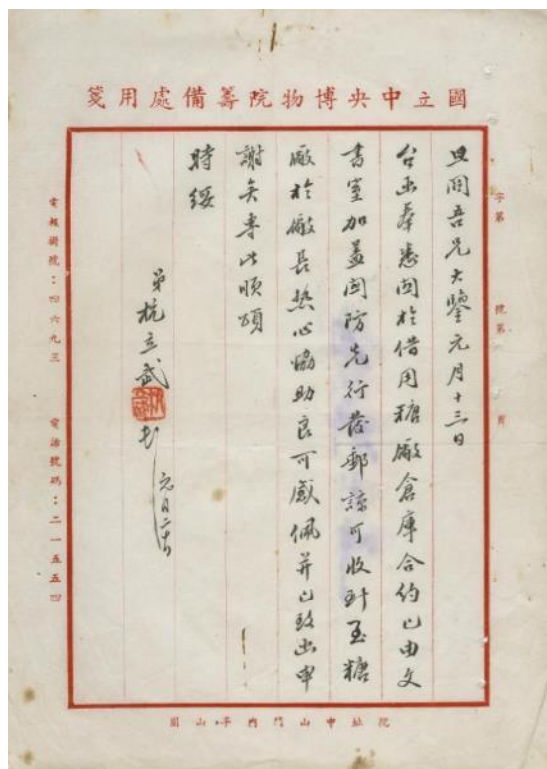 國立中央博物院籌備處用箋
字第 號第 頁
旦同吾兄大鑒元月十三日
台函奉悉關於借用糖廠倉庫合約已由文
書室加蓋關防先行發郵諒可收到至糖
廠於廠長熱心協助良可感佩并已致函申
謝矣專此順頌
時綏
弟杭立武
元月
電報掛號：四六九三 電話號碼：二一五五四
院址中山門內半山園